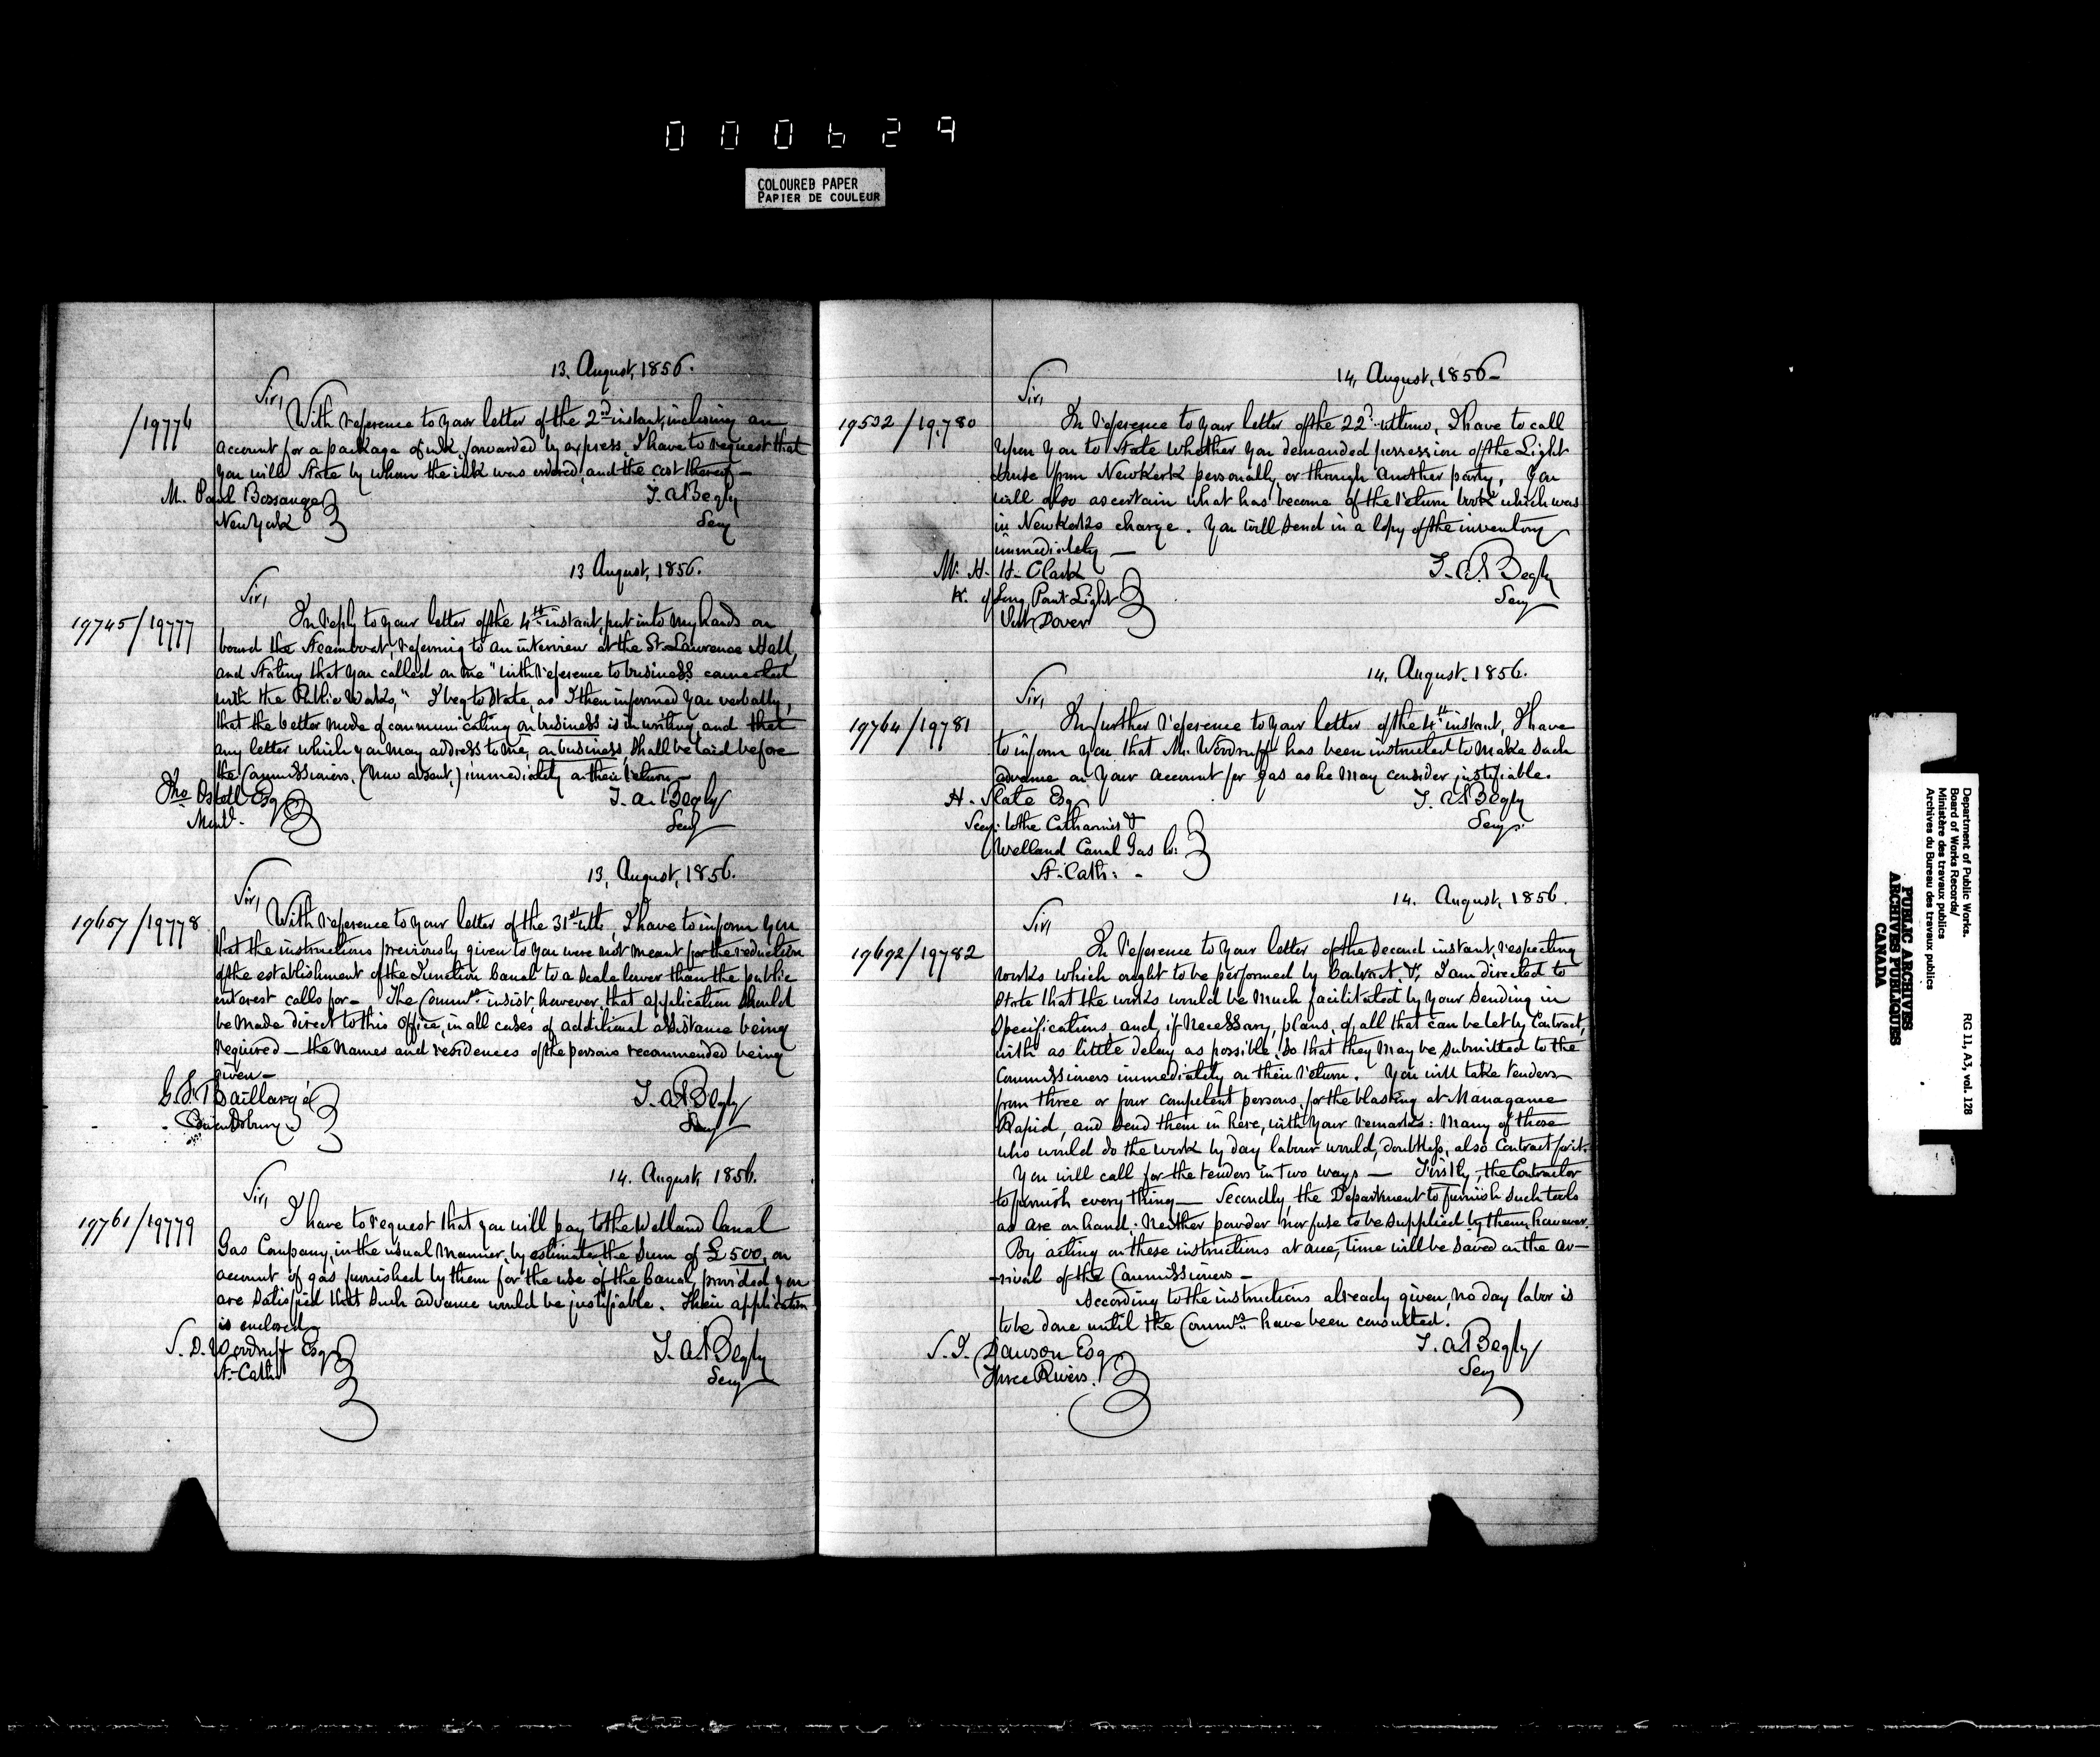 000629
COLOURED PAPER
PAPIER DE COULEUR
13. August, 1856.
Sir,
/19776
With reference to your letter of the 2nd instant, inclosing an
account for a package of ink, forwarded by express, I have to request that
you will state by whom the ink was ordered, and the cost thereof —
M. Paul Bossange
New York
T. A. Begly
Secy
13 August, 1856.
Sir,
19745/19777
In reply to your letter of the 4th instant, put into my hands on
board the Steamboat, referring to an interview at the St. Lawrence Hall,
and stating that you called on me "with reference to business connected
with the Public Works," I beg to state, as I then informed you verbally,
that the better mode of communicating on business is in writing and that
any letter which you may address to me, on business, shall be laid before
the Commissioners, (now absent,) immediately on their return —
Tho Ostell Esq
Montl.
T. A. Begly
Secy
13, August, 1856.
Sir,
19657/19778
With reference to your letter of the 31st ulto, I have to inform you
that the instructions previously given to you were not meant for the reduction
of the establishment of the Junction Canal to a scale lower than the public
interest calls for — The Commrs insist, however, that application should
be made direct to this Office, in all cases of additional assistance being
required — the names and residences of the persons recommended being
given —
G. F. Baillargé
T. A. Begly
Secy
14. August, 1856.
Sir,
19761/19779
I have to request that you will pay to the Welland Canal
Gas Company, in the usual manner, by estimate the Sum of £500, on
account of gas furnished by them for the use of the Canal, provided you
are satisfied that such advance would be justifiable. Their application
is enclosed —
S. D. Woodruff Esq
St. Cath
T. A. Begly
Secy
14, August, 1856 —
Sir,
19532/19,780
In reference to your letter of the 22d ultimo, I have to call
upon you to state whether you demanded possession of the Light
house from Newkerk personally or through another party. You
will also ascertain what has become of the return book which was
in Newkerks charge. You will send in a copy of the inventory
immediately —
Mr. H. H. Clark
K. of Long Point Light
Port Dover
T. A. Begly
Secy
14, August, 1856.
Sir,
19764/19781
In further reference to your letter of the 4th instant, I have
to inform you that Mr. Woodruff has been instructed to make such
advance on your account for gas as he may consider justifiable.
H. Slate Esq
Secy: to the Catharines &
Welland Canal Gas Co:
St. Cath: -
T. A. Begly
Secy.
14. August, 1856.
Sir,
19692/19782
In reference to your letter of the second instant, respecting
works which ought to be performed by Contract &c. I am directed to
state that the works would be much facilitated by your sending in
specifications, and, if necessary, plans, of all that can be let by Contract,
with as little delay as possible, so that they may be submitted to the
Commissioners immediately on their return. You will take tenders
from three or four competent persons, for the blasting at Managame
Rapid, and send them in here, with your remarks: Many of those
who would do the work by day labour would, doubtless, also Contract for it.
You will call for the tenders in two ways — Firstly, the Contractor
to furnish every thing — Secondly, the Department to furnish such tools
as are on hand: neither powder nor fuse to be supplied by them, however.
By acting on these instructions at once, time will be saved on the ar-
rival of the Commissioners —
According to the instructions already given, no day labor is
to be done until the Commrs have been consulted.
S. J. Dawson Esq
Three Rivers.
T. A. Begly
Secy
Department of Public Works.
Board of Works Records/
Ministère des travaux publics
Archives du Bureau des travaux publics
RG 11, A3, vol. 128
PUBLIC ARCHIVES
ARCHIVES PUBLIQUES
CANADA